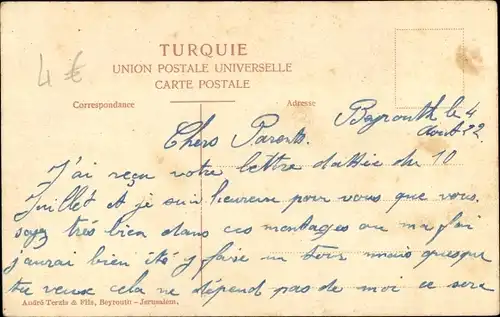 TURQUIE
UNION POSTALE UNIVERSELLE
CARTE POSTALE
4 €
Correspondance
Adresse
Beyrouth le 4
Aout 22
Chers Parents.
J'ai reçu votre lettre datée du 10
Juillet et je suis heureux pour vous que vous
soyez très bien dans ces montages ou ma foi
j'aurai bien été y faire un tour mais puesque
tu veux cela ne dépend pas de moi ce sera
André Terzis & Fils, Beyrouth - Jerusalem.